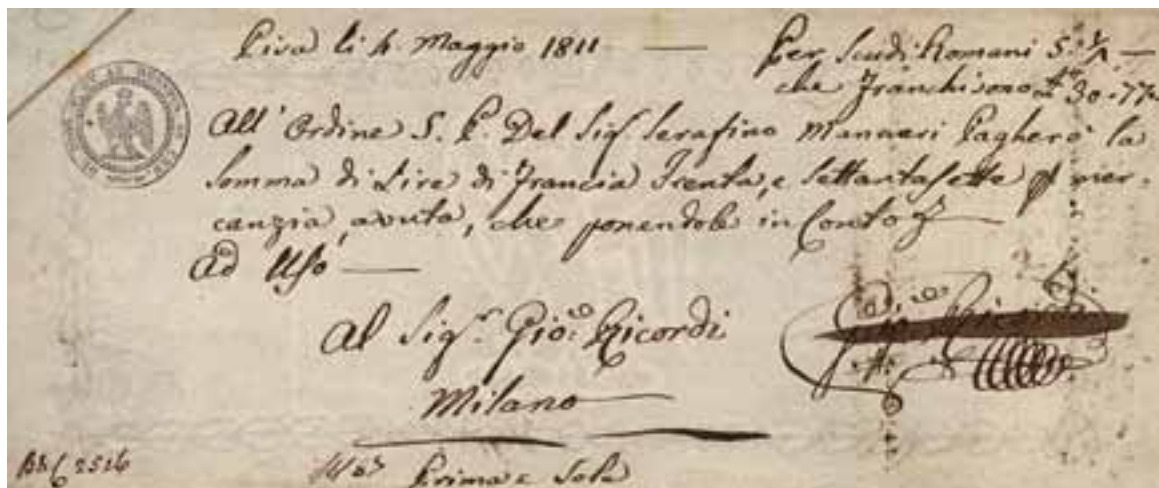 Pisa li 4. Maggio 1811 — Per Scudi Romani 5:
che Franchi sono 30.77
All' Ordine S. P. Del Sig.r Serafino Manneri Pagherò la
Somma di Lire di Francia Trenta, e Settantasette mer-
canzia, avuta, che ponendole in Conto
Ad Uso —
Al Sig.r Gio: Ricordi
Milano
2516
Prima e Sola